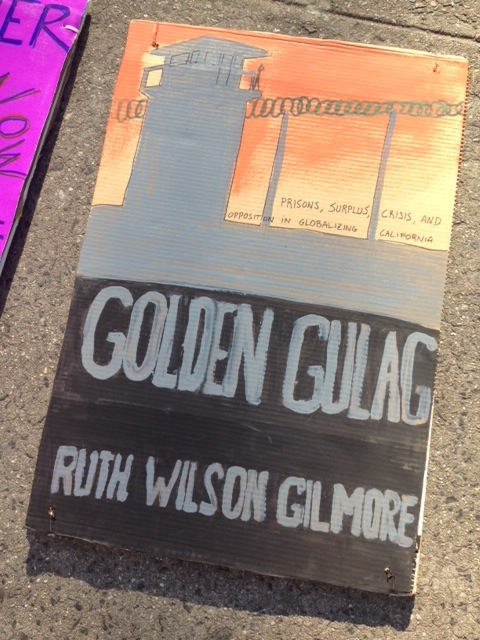 ER
NOW
PRISONS, SURPLUS, CRISIS, AND
OPPOSITION IN GLOBALIZING CALIFORNIA
GOLDEN GULAG
RUTH WILSON GILMORE